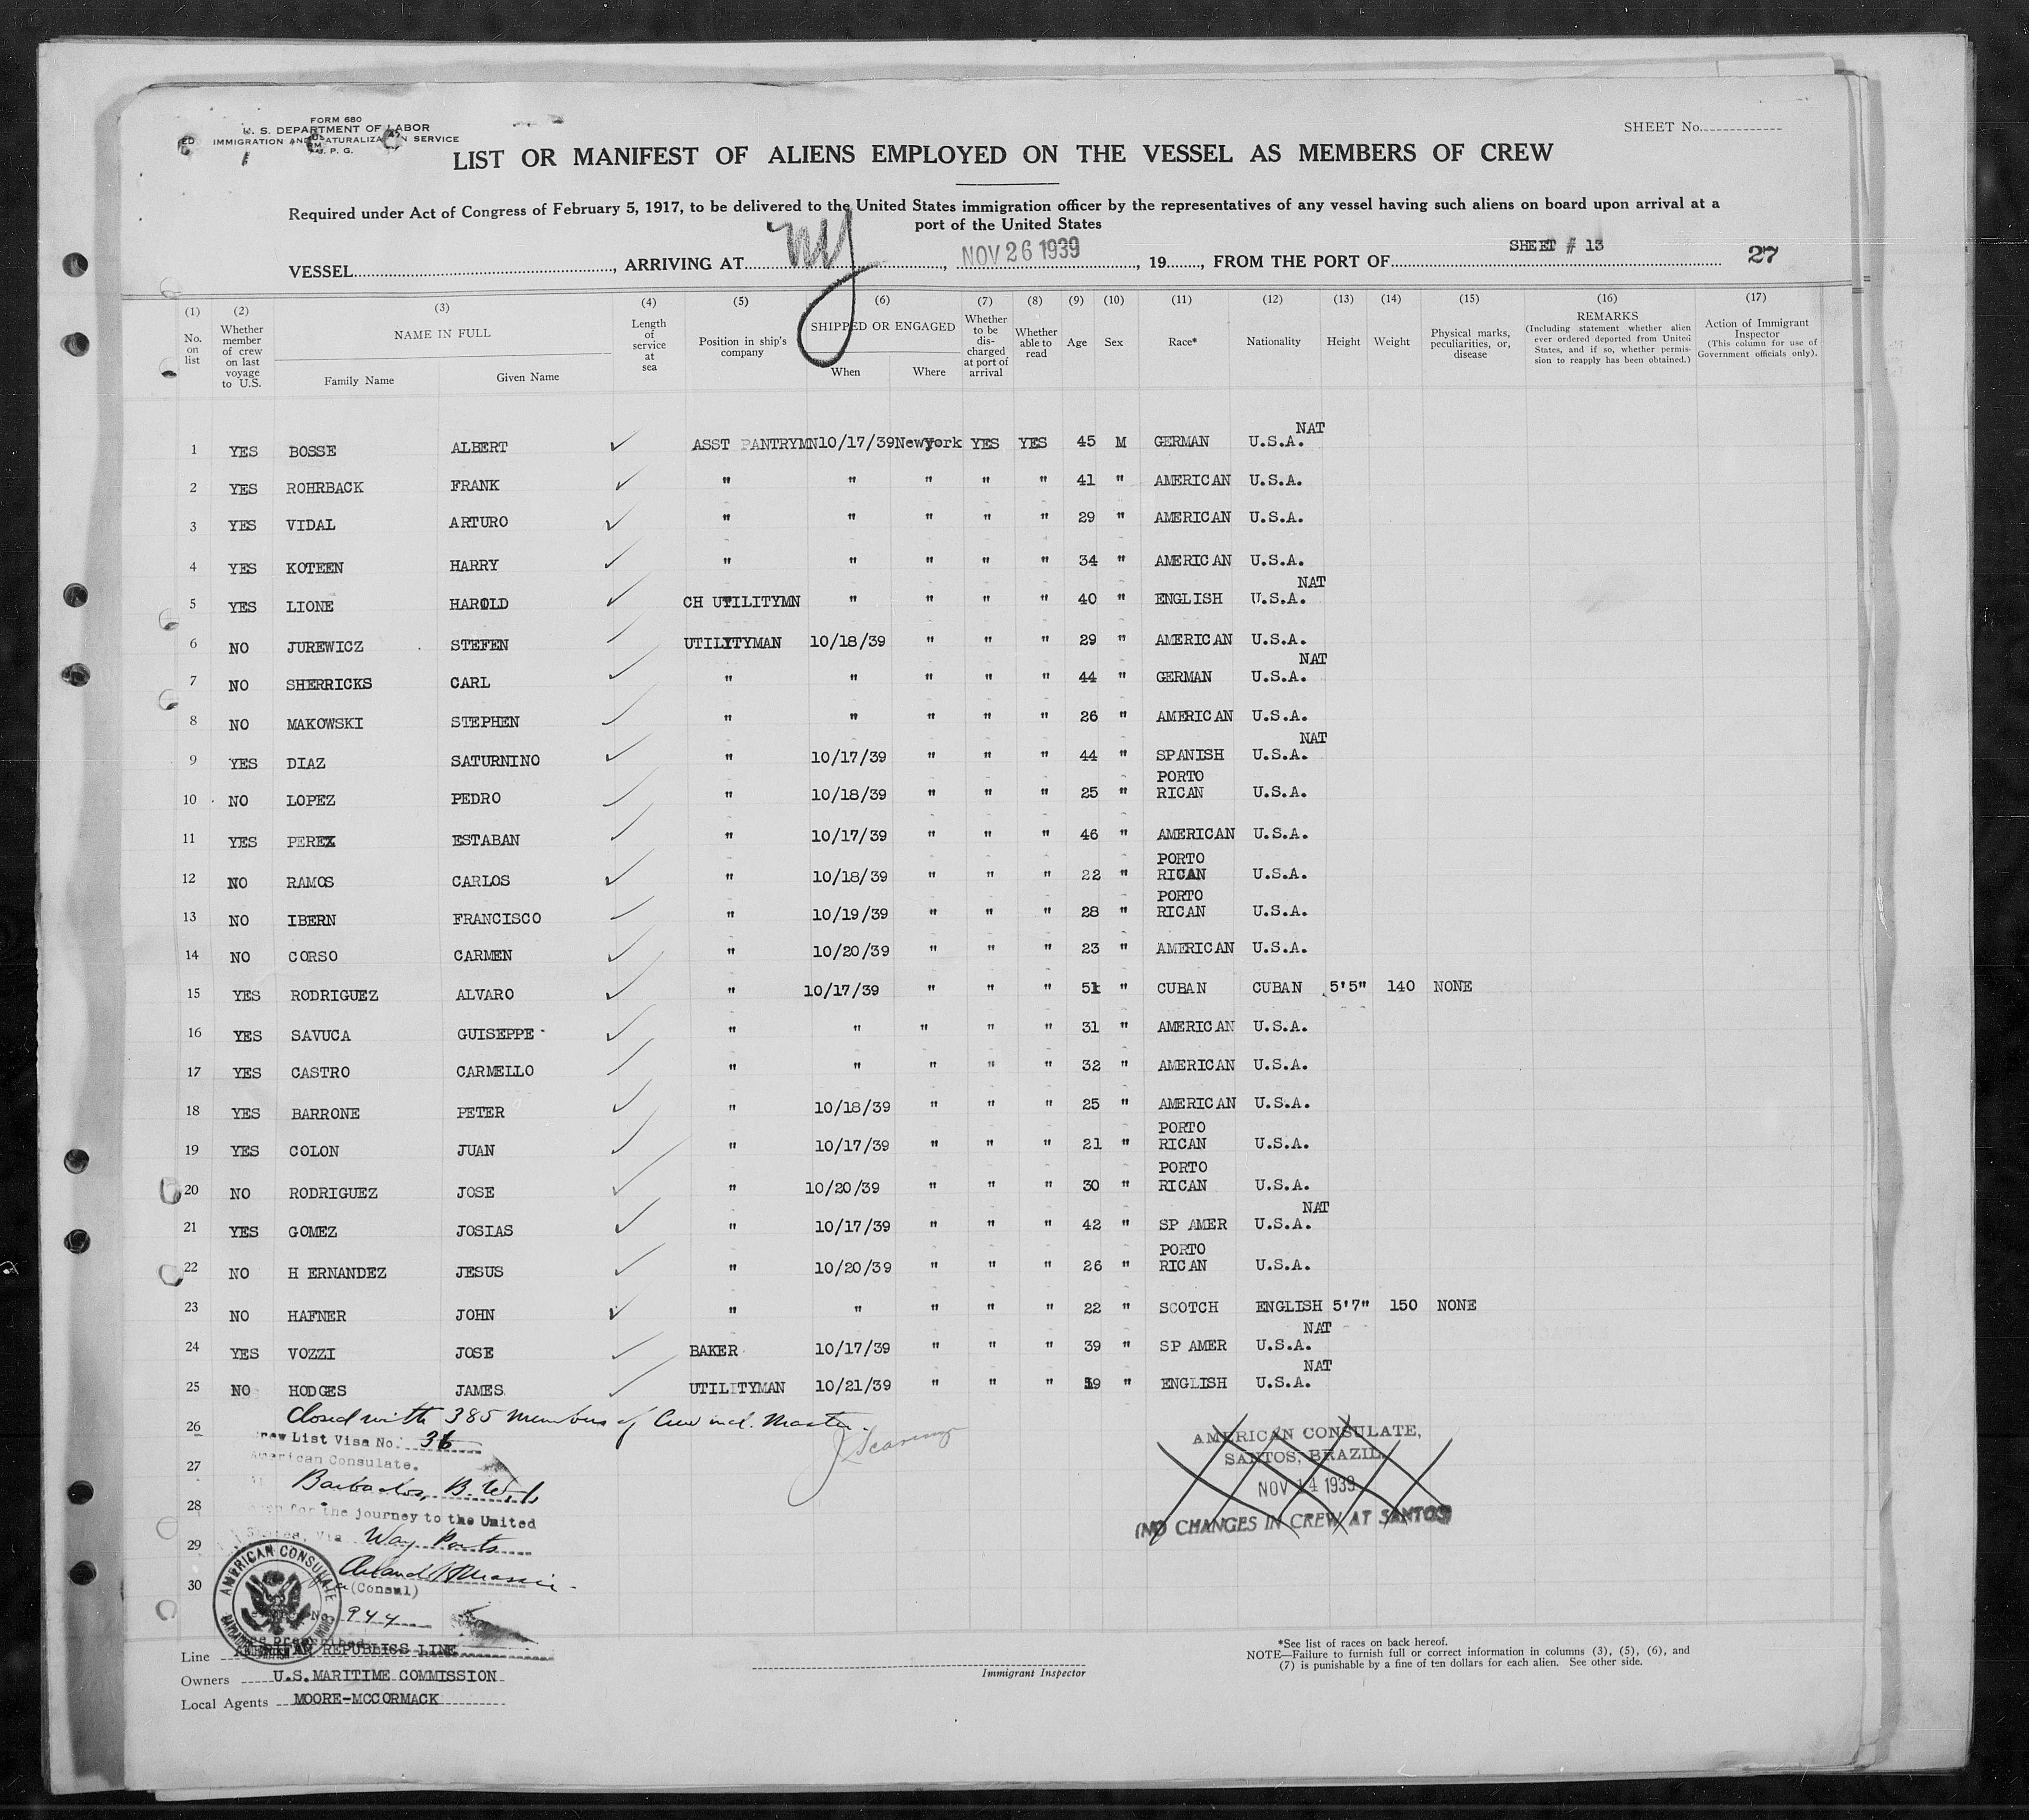 FORM 680
U. S. DEPARTMENT OF LABOR
IMMIGRATION AND NATURALIZATION SERVICE
SHEET No.
LIST OR MANIFEST OF ALIENS EMPLOYED ON THE VESSEL AS MEMBERS OF CREW
Required under Act of Congress of February 5, 1917, to be delivered to the United States immigration officer by the representatives of any vessel having such aliens on board upon arrival at a
port of the United States
SHEET # 13
VESSEL, ARRIVING AT NY, NOV 26 1939, 19, FROM THE PORT OF 27
(1) (2) (3) (4) (5) (6) (7) (8) (9) (10) (11) (12) (13) (14) (15) (16) (17)
No. on list
Whether member of crew on last voyage to U.S.
NAME IN FULL
Family Name Given Name
Length of service at sea
Position in ship's company
SHIPPED OR ENGAGED
When Where
Whether to be discharged at port of arrival
Whether able to read
Age Sex Race* Nationality Height Weight
Physical marks, peculiarities, or, disease
REMARKS
(Including statement whether alien ever ordered deported from United States, and if so, whether permission to reapply has been obtained.)
Action of Immigrant Inspector
(This column for use of Government officials only).
1 YES BOSSE ALBERT ✓ ASST PANTRYMN 10/17/39 Newyork YES YES 45 M GERMAN U.S.A. NAT
2 YES ROHRBACK FRANK ✓ " " " " " 41 " AMERICAN U.S.A.
3 YES VIDAL ARTURO ✓ " " " " " 29 " AMERICAN U.S.A.
4 YES KOTEEN HARRY ✓ " " " " " 34 " AMERICAN U.S.A.
5 YES LIONE HAROLD ✓ CH UTILITYMN " " " " 40 " ENGLISH U.S.A. NAT
6 NO JUREWICZ STEFEN ✓ UTILITYMAN 10/18/39 " " " 29 " AMERICAN U.S.A.
7 NO SHERRICKS CARL ✓ " " " " " 44 " GERMAN U.S.A. NAT
8 NO MAKOWSKI STEPHEN ✓ " " " " " 26 " AMERICAN U.S.A.
9 YES DIAZ SATURNINO ✓ " 10/17/39 " " " 44 " SPANISH U.S.A. NAT
10 NO LOPEZ PEDRO ✓ " 10/18/39 " " " 25 " PORTO RICAN U.S.A.
11 YES PEREZ ESTABAN ✓ " 10/17/39 " " " 46 " AMERICAN U.S.A.
12 NO RAMOS CARLOS ✓ " 10/18/39 " " " 22 " PORTO RICAN U.S.A.
13 NO IBERN FRANCISCO ✓ " 10/19/39 " " " 28 " PORTO RICAN U.S.A.
14 NO CORSO CARMEN ✓ " 10/20/39 " " " 23 " AMERICAN U.S.A.
15 YES RODRIGUEZ ALVARO ✓ " 10/17/39 " " " 51 " CUBAN CUBAN 5'5" 140 NONE
16 YES SAVUCA GUISEPPE ✓ " " " " " 31 " AMERICAN U.S.A.
17 YES CASTRO CARMELLO ✓ " " " " " 32 " AMERICAN U.S.A.
18 YES BARRONE PETER ✓ " 10/18/39 " " " 25 " AMERICAN U.S.A.
19 YES COLON JUAN ✓ " 10/17/39 " " " 21 " PORTO RICAN U.S.A.
20 NO RODRIGUEZ JOSE ✓ " 10/20/39 " " " 30 " PORTO RICAN U.S.A.
21 YES GOMEZ JOSIAS ✓ " 10/17/39 " " " 42 " SP AMER U.S.A. NAT
22 NO H ERNANDEZ JESUS ✓ " 10/20/39 " " " 26 " PORTO RICAN U.S.A.
23 NO HAFNER JOHN ✓ " " " " " 22 " SCOTCH ENGLISH 5'7" 150 NONE
24 YES VOZZI JOSE ✓ BAKER 10/17/39 " " " 39 " SP AMER U.S.A. NAT
25 NO HODGES JAMES ✓ UTILITYMAN 10/21/39 " " " 39 " ENGLISH U.S.A. NAT
26 Closed with 385 members of Crew incl. Master.
Crew List Visa No. 36
American Consulate.
27
Barbados, B.W.I.
28
for the journey to the United
States, via Way Ports
29
30
(Consul)
No. 944
AMERICAN CONSULATE
AMERICAN CONSULATE,
SANTOS, BRAZIL.
NOV 14 1939
(NO CHANGES IN CREW AT SANTOS)
Line AMERICAN REPUBLISS LINE
Owners U.S.MARITIME COMMISSION
Local Agents MOORE-MCCORMACK
Immigrant Inspector
*See list of races on back hereof.
NOTE—Failure to furnish full or correct information in columns (3), (5), (6), and
(7) is punishable by a fine of ten dollars for each alien. See other side.